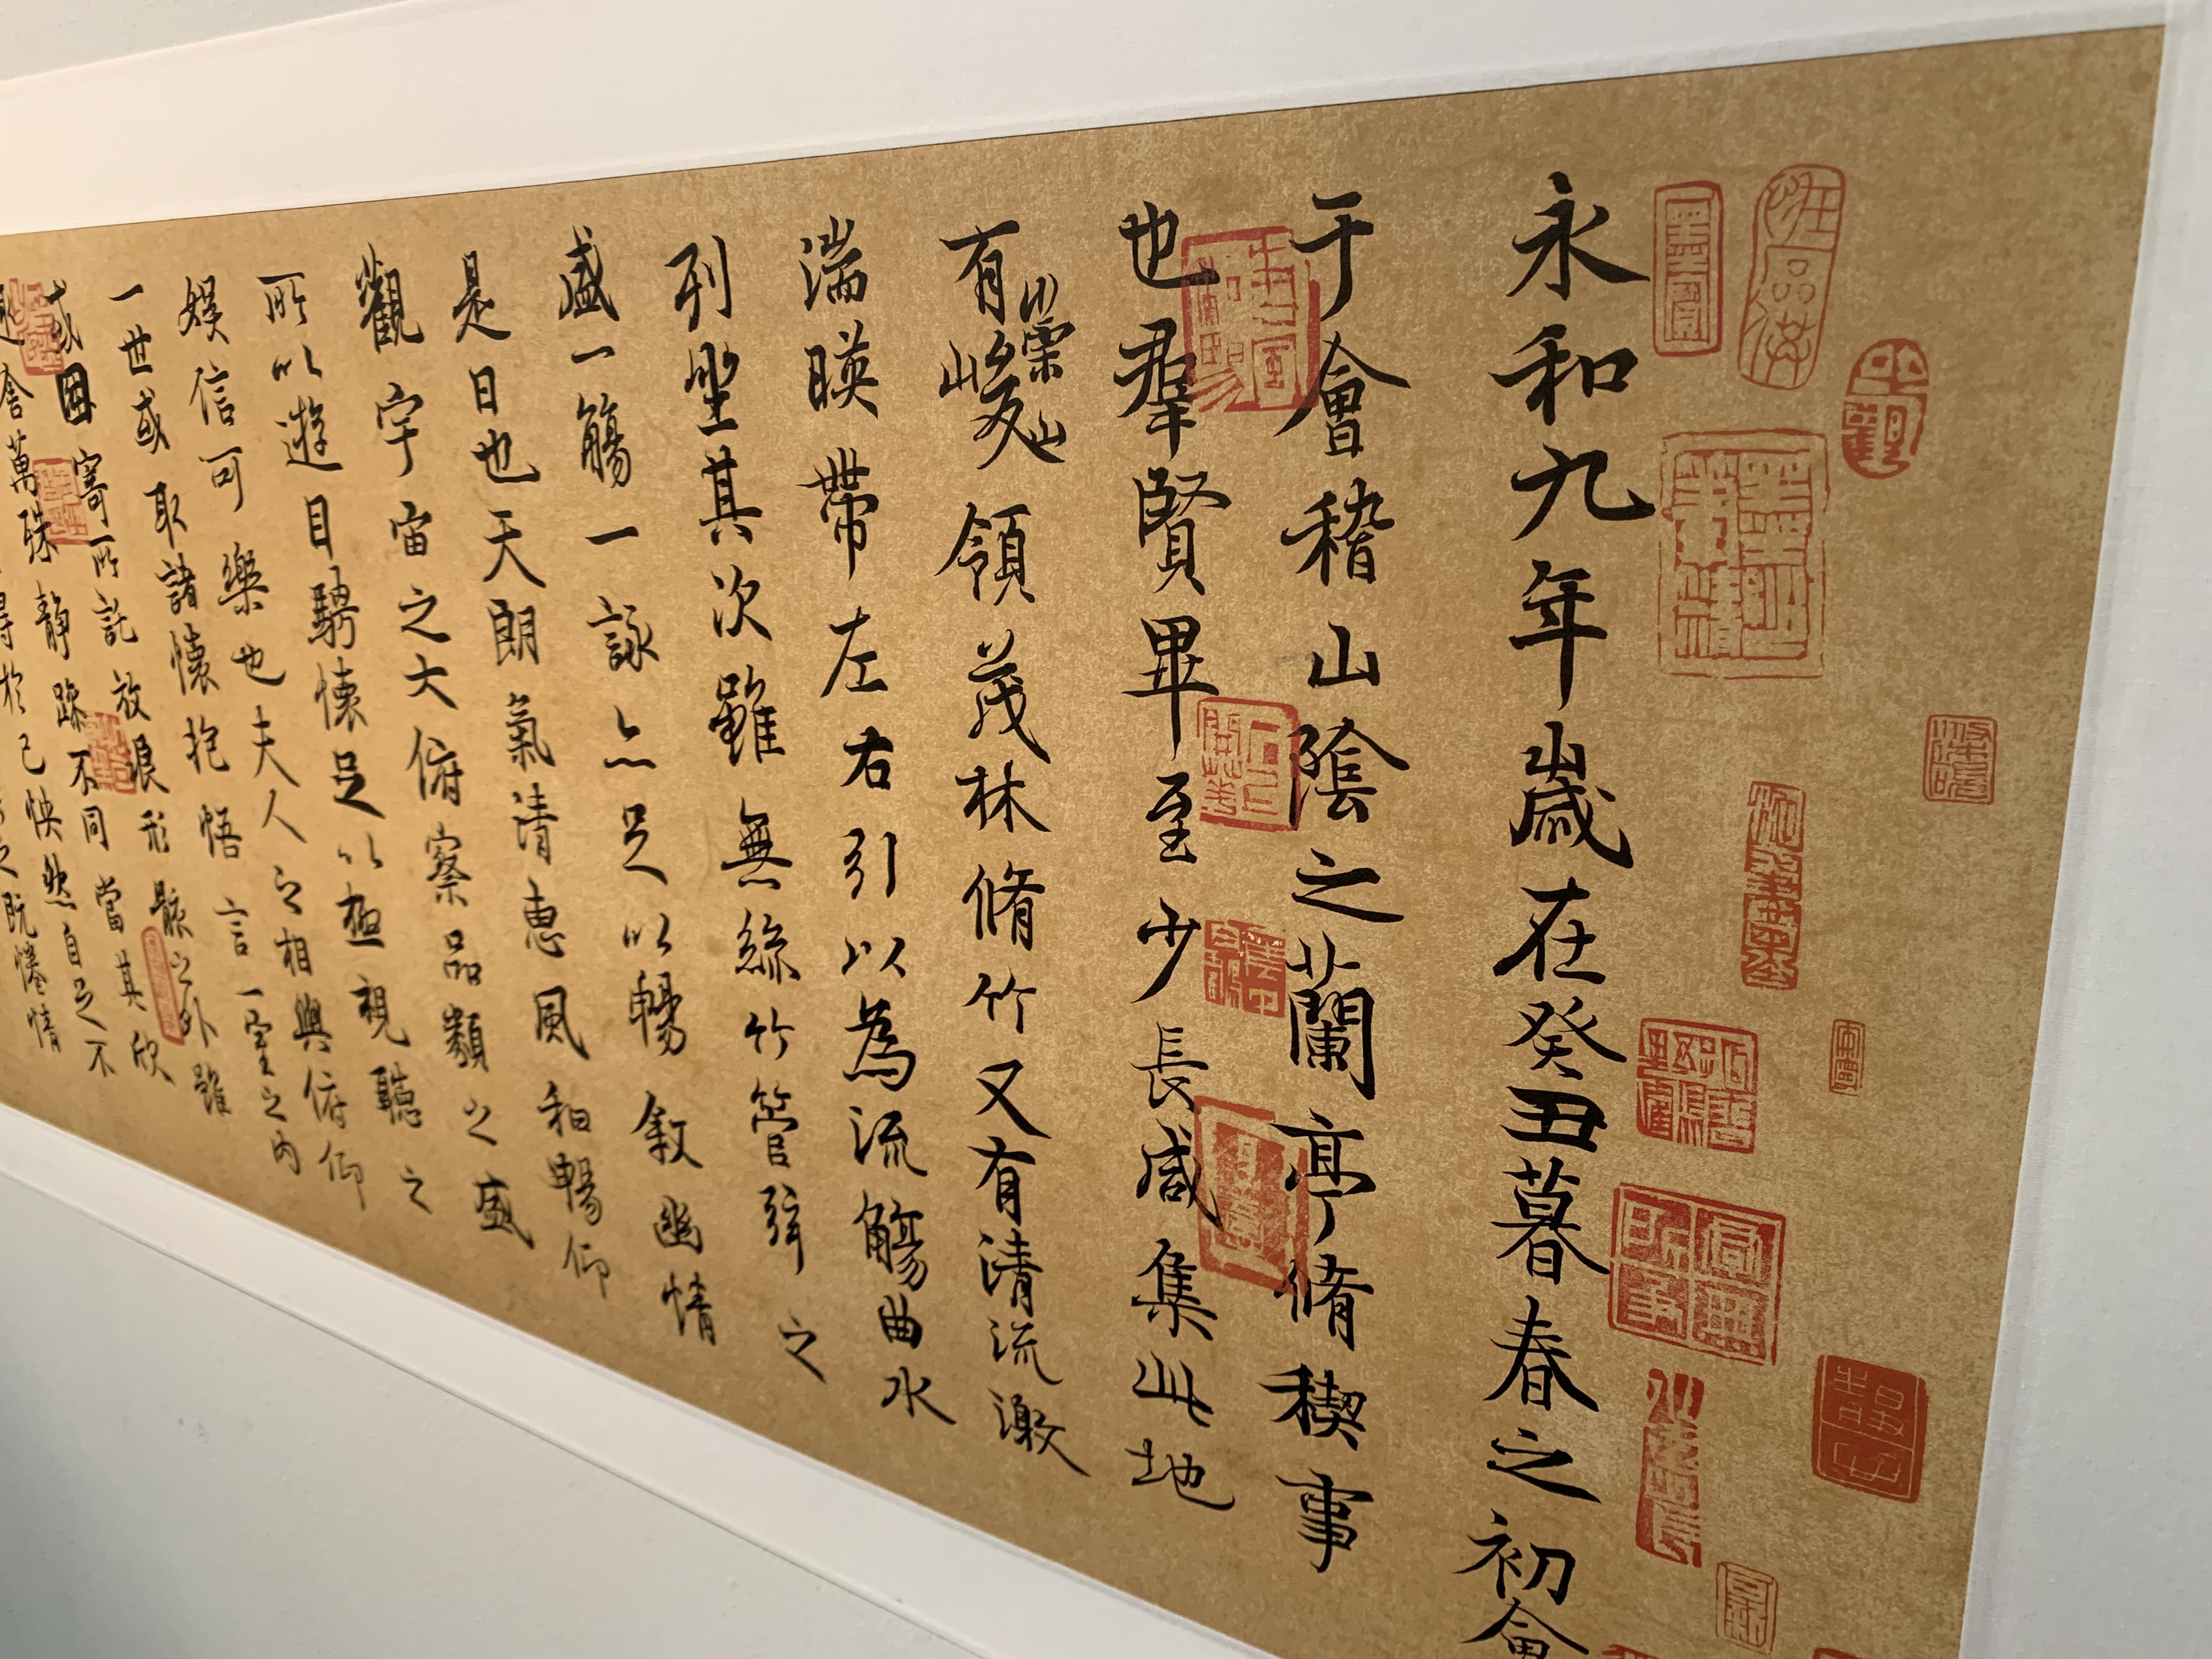 永和九年歲在癸丑暮春之初會
于會稽山陰之蘭亭脩稧事
也羣賢畢至少長咸集此地
有崇山峻領茂林脩竹又有清流激
湍暎帶左右引以為流觴曲水
列坐其次雖無絲竹管弦之
盛一觴一詠亦足以暢敘幽情
是日也天朗氣清惠風和暢仰
觀宇宙之大俯察品類之盛
所以遊目騁懷足以極視聽之
娛信可樂也夫人之相與俯仰
一世或取諸懷抱悟言一室之內
或因寄所託放浪形骸之外雖
趣舍萬殊靜躁不同當其欣
得於己怏然自足不
既惓情